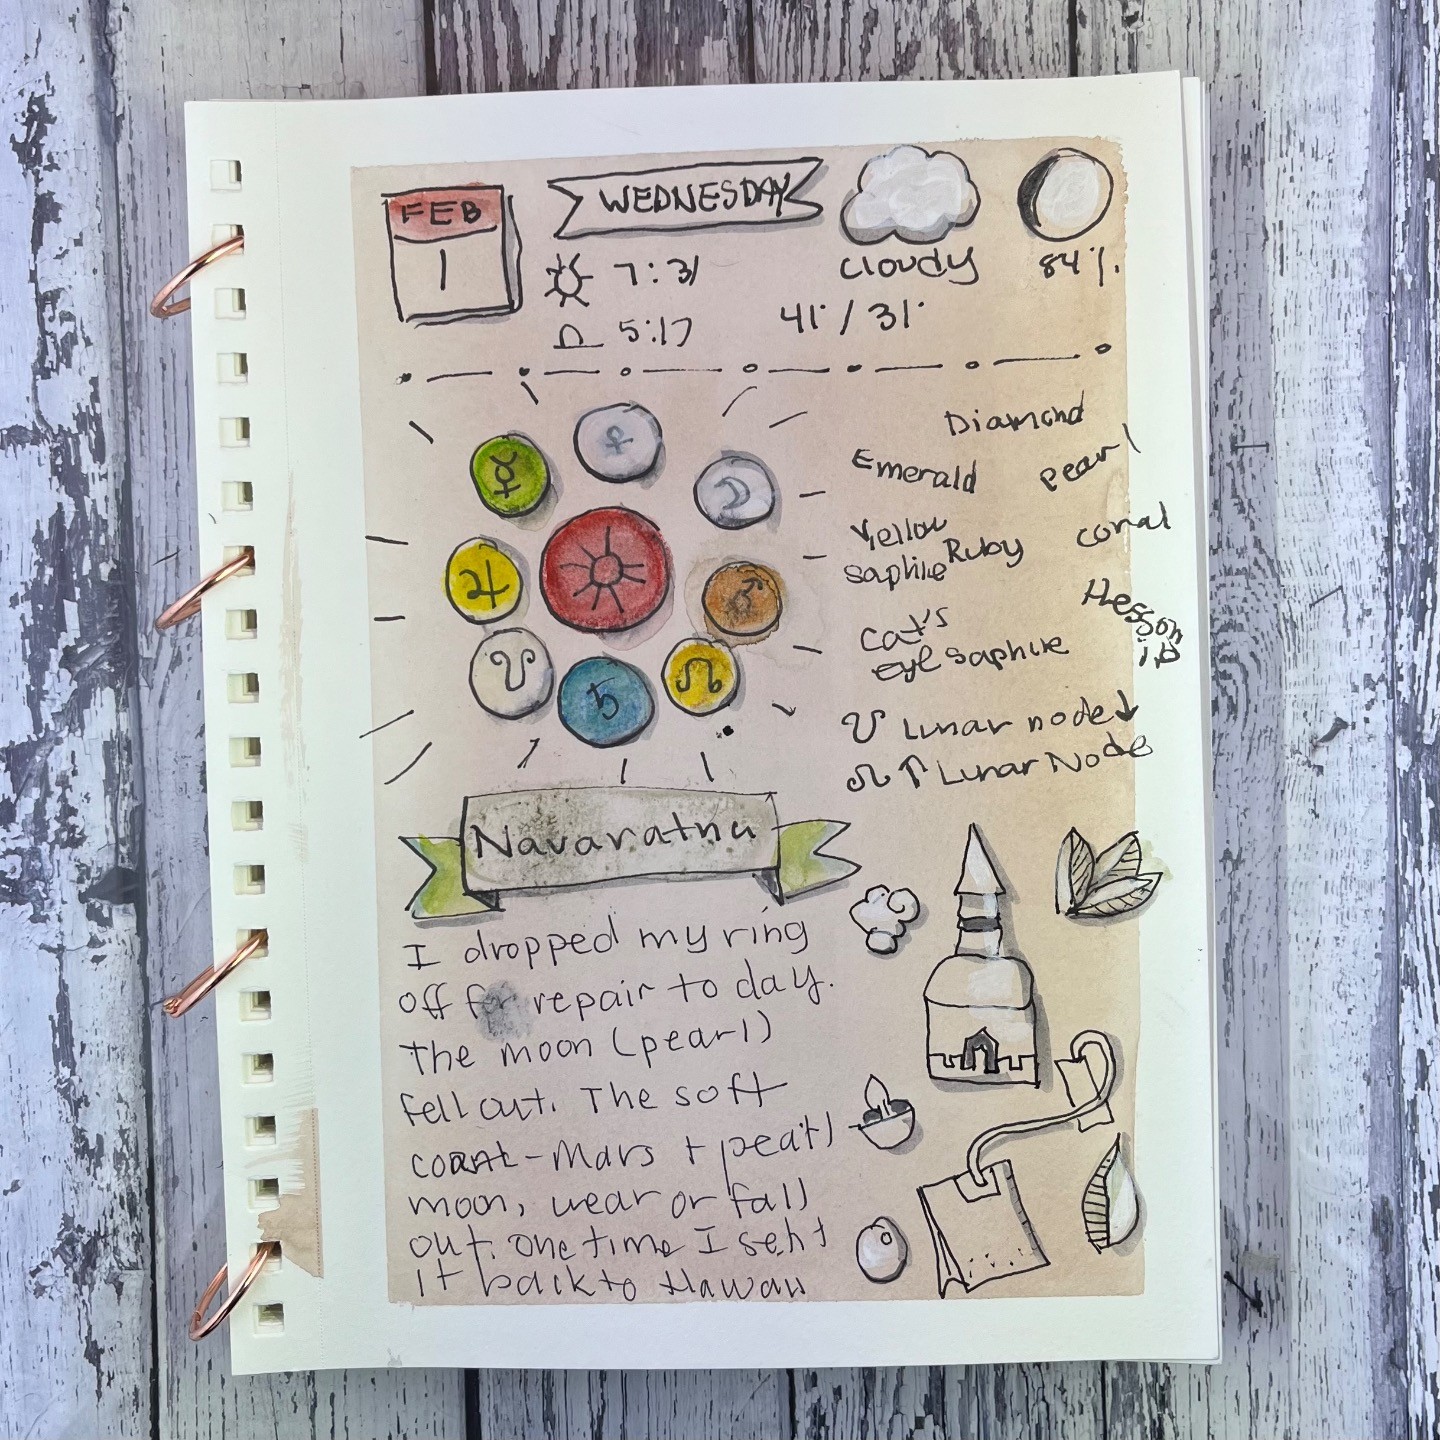 FEB
1
WEDNESDAY
7:31
5:17
cloudy
84%.
41° / 31°
Diamond
Emerald
pearl
Yellow
saphire
Ruby
coral
Hessonite
Cat's
eye
saphire
Lunar node ↓
↑ Lunar Node
Navaratna
I dropped my ring
off for repair to day.
the moon (pearl)
fell out. The soft
coral - Mars + pearl
moon, wear or fall
out. one time I sent
it back to Hawaii